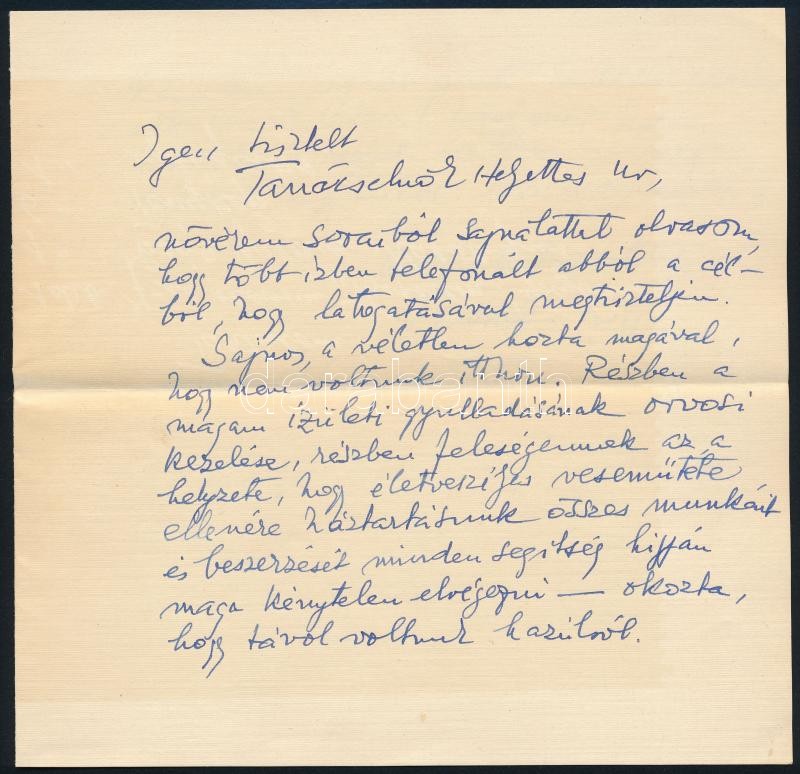 Igen tisztelt
Tanácselnök Helyettes Úr,
nővérem soraiból sajnálattal olvasom,
hogy több ízben telefonált abból a cél-
ból, hogy látogatásával megtiszteljen.
Sajnos, a véletlen hozta magával,
hogy nem voltunk itthon. Részben a
magam ízületi gyulladásának orvosi
kezelése, részben feleségemnek az a
helyzete, hogy életveszélyes veseműtéte
ellenére háztartásunk összes munkáit
és beszerzését minden segítség híjján
maga kénytelen elvégezni — okozta,
hogy távol voltunk hazulról.
darabanth